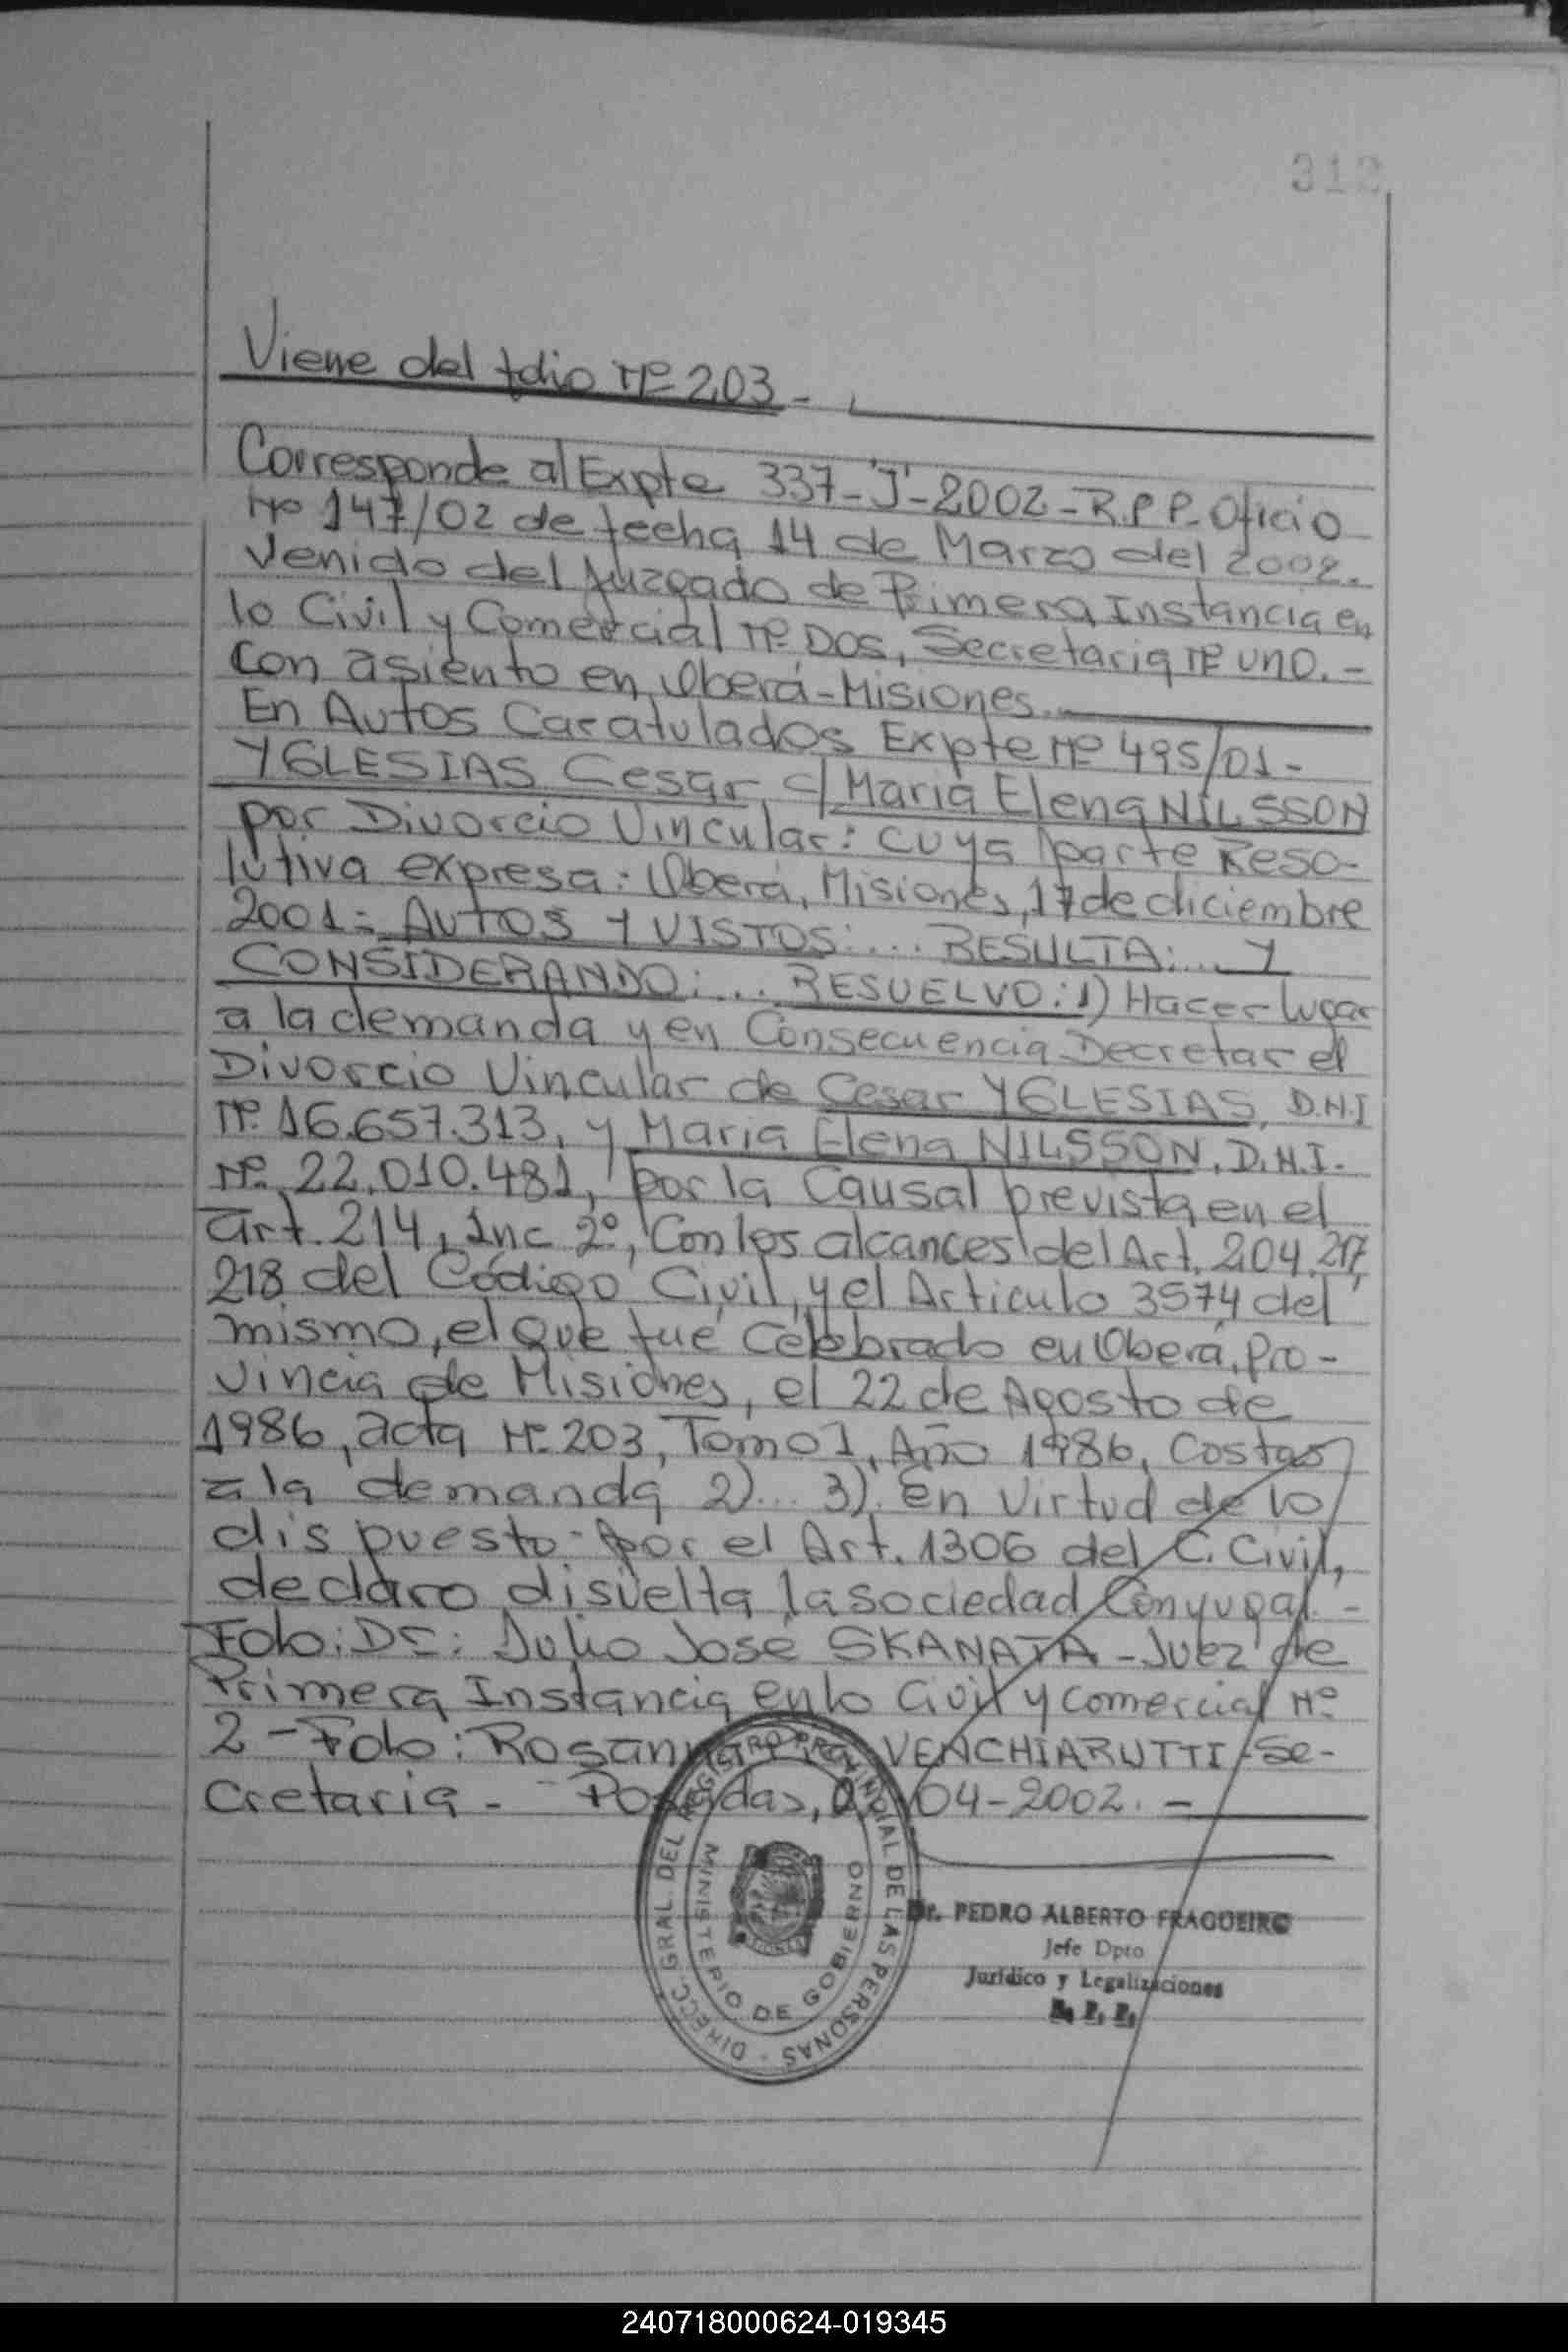 312
Viene del folio Nº 203 -
Corresponde al Expte 337-"J"-2002-R.P.P. Oficio
Nº 147/02 de fecha 14 de Marzo del 2002.
Venido del Juzgado de Primera Instancia en
lo Civil y Comercial Nº Dos, Secretaria Nº UNO. -
con asiento en Oberá-Misiones.
En Autos Caratulados Expte Nº 495/01-
YGLESIAS Cesar c/ Maria Elena NILSSON
por Divorcio Vincular: cuya parte Reso-
lutiva expresa: Oberá, Misiones, 17 de diciembre
2001= AUTOS Y VISTOS:.... RESULTA:... Y
CONSIDERANDO:... RESUELVO: 1) Hacer lugar
a la demanda y en Consecuencia Decretar el
Divorcio Vincular de Cesar YGLESIAS, D.N.I
Nº. 16.657.313, y Maria Elena NILSSON, D.N.I.
Nº. 22.010.481, por la Causal prevista en el
art. 214, Inc 2º, Con los alcances del Art. 204, 217,
218 del Código Civil, y el Articulo 3574 del
mismo, el que fué Celebrado en Oberá, Pro-
vincia de Misiones, el 22 de Agosto de
1986, acta Nº 203, Tomo I, Año 1986, Costas
a la demanda 2)... 3). En Virtud de lo
dispuesto por el Art. 1306 del C. Civil,
declaro disuelta la sociedad Conyugal. -
Fdo: Dr: Julio José SKANATA - Juez de
Primera Instancia en lo Civil y Comercial Nº
2 - Fdo: Rosanna VENCHIARUTTI - Se-
cretaria - Posadas, 04-2002. -
DIRECC. GRAL. DEL REGISTRO PROVINCIAL DE LAS PERSONAS
MINISTERIO DE GOBIERNO
Dr. PEDRO ALBERTO FRAGUEIRO
Jefe Dpto
Jurídico y Legalizaciones
R. P. P.
240718000624-019345